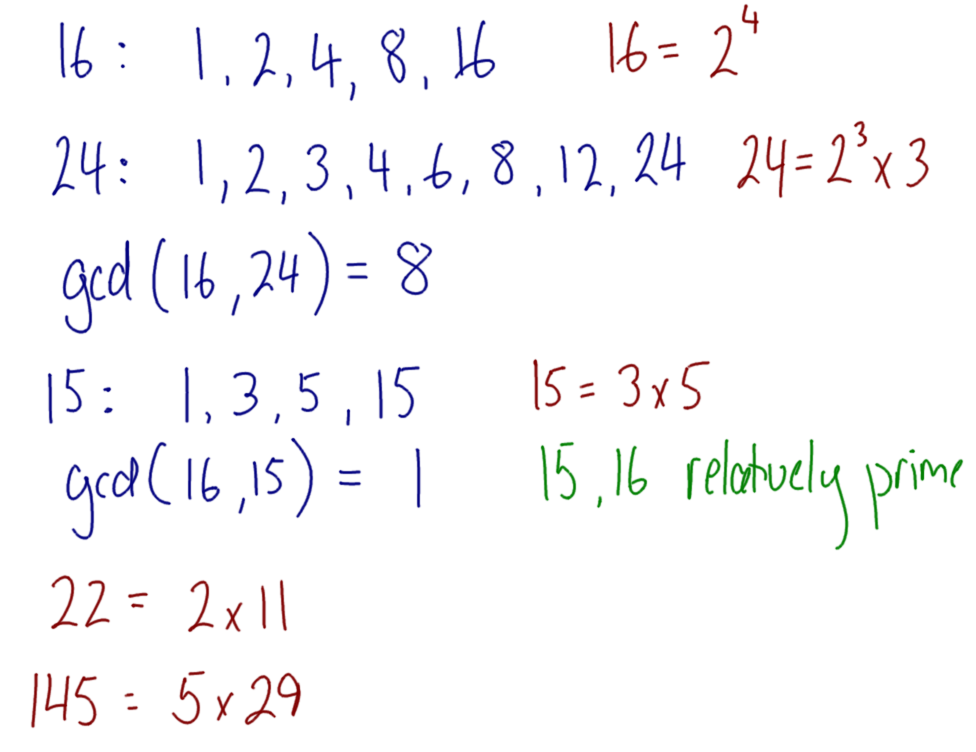 16 : 1, 2, 4, 8, 16 16 = 2⁴
24 : 1, 2, 3, 4, 6, 8, 12, 24 24 = 2³ x 3
gcd (16, 24) = 8
15 : 1, 3, 5, 15 15 = 3 x 5
gcd (16, 15) = 1 15, 16 relatively prime
22 = 2 x 11
145 = 5 x 29